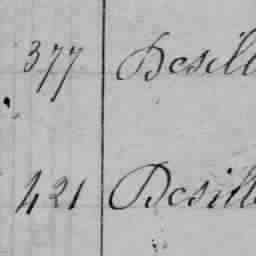 377 Desill
421 Desill